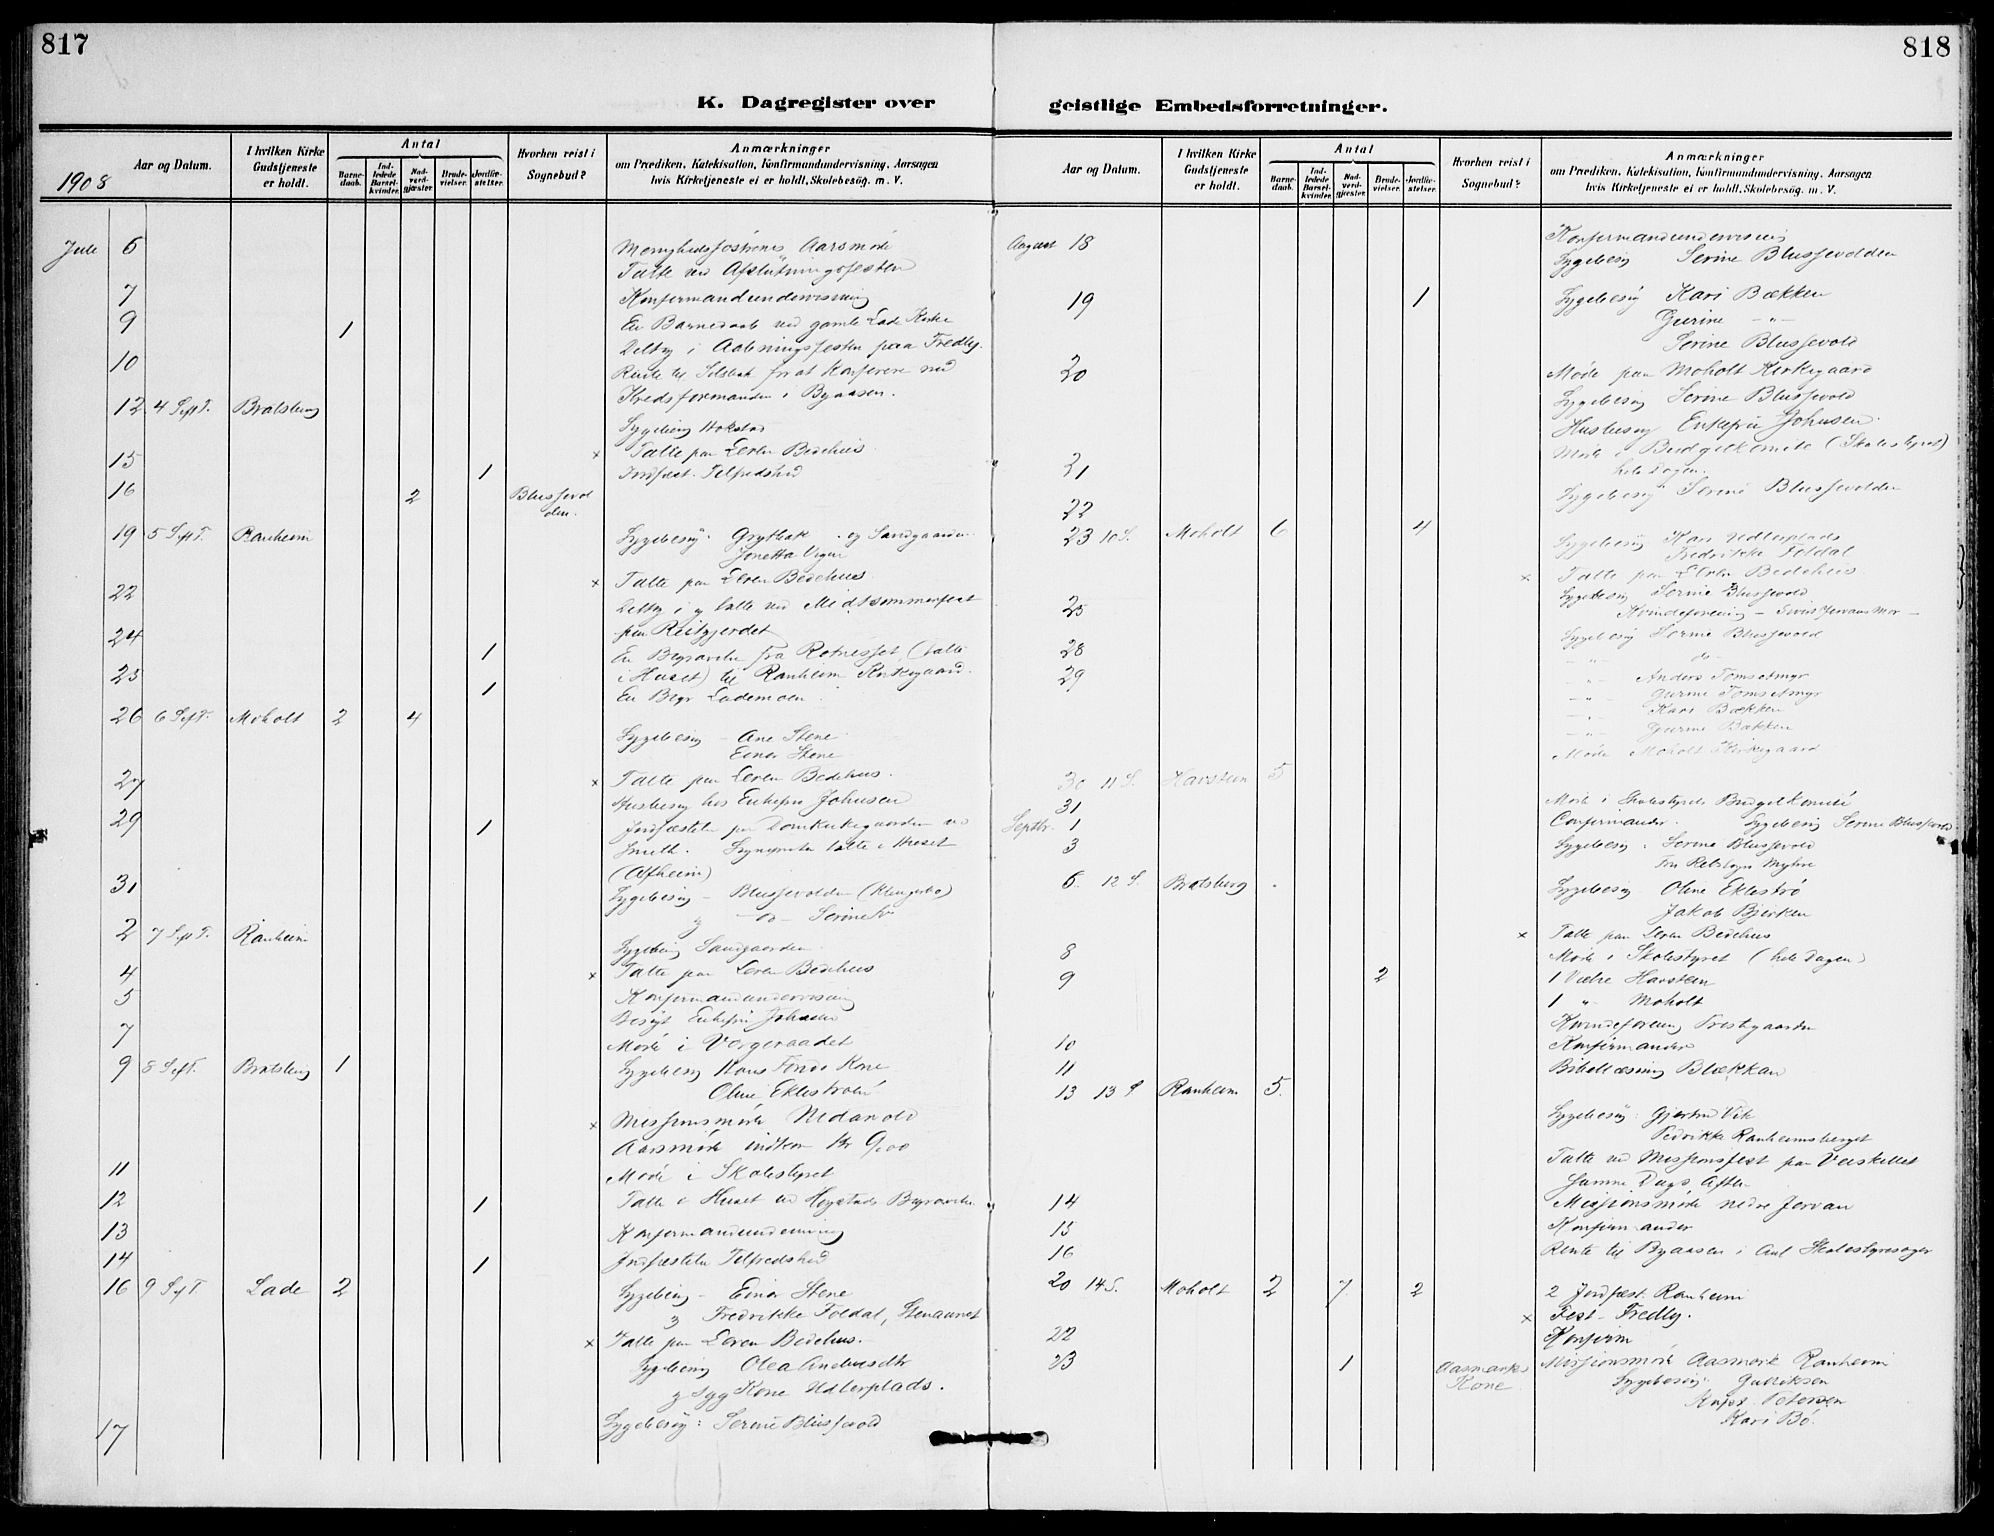 817
K. Dagregister over
1908
Aar og Datum.
I hvilken Kirke Gudstjeneste er holdt.
Antal
Barnedaab.
Indledede Barselkvinder.
Nadverdgjæster.
Brudevielser.
Jordfæstelser.
Hvorhen reist i Sognebud?
Anmærkninger
om Prædiken, Katekisation, Konfirmandundervisning, Aarsagen
hvis Kirketjeneste ei er holdt, Skolebesøg. m. V.
Juli 6 Aarsmøde
Talte ved Afslutningsfesten
7 Konfirmandundervisning
9 1 En Barnedaab ved gamle Lade Kirke
Deltog i Aabningsfesten paa Fredly.
10 Reiste til for at Konferere med
Kredsformanden i Byaasen.
12 4 S. e. T. Bratsberg
Sygebesøg Hokstad
x Talte paa Leren Bedehus
15 1 Jordfæst. Tilfredshed
16 2 Blussevolden.
19 5 S. e. T. Ranheim
Sygebesøg: og Sandgaarden
Jonetta
x Talte paa Leren Bedehus.
22 Deltog i og talte ved Midtsommerfest
paa Reitgjerdet
24 1 En Begravelse fra Rotnesset (talte
i Huset) til Ranheim Kirkegaard.
25 1 En Begr Lademoen
26 6 S. e. T. Moholt 2 4
Sygebesøg - Ane Stene
Einar Stene
x Talte paa Leren Bedehus.
27 Husbesøg hos Enkefru Johnsen
29 1 Jordfæstelse paa Domkirkegaarden
Smith. talte i Huset
(Alfheim)
31 Sygebesøg - Blussevolden
og - do - Serine
2 7 S. e. T. Ranheim
Sygebesøg Sandgaarden
x Talte paa Leren Bedehus
4 Konfirmandundervisning
5 Besøgt Enkefru Johnsen
7 Møde i Vergeraadet
9 8 S. e. T. Bratsberg 1 Sygebesøg Hans Kone
Oline
x Missionsmøde Nedanold
Aarsmøde indkom Kr 9,00
11 Møde i Skolestyret
12 1 Talte i Huset ved Begravelse
13 Konfirmandundervisning
14 1 Jordfæstelse Tilfredshed
16 9 S. e. T Lade 2 Sygebesøg - Einar Stene
og Fredrikke Foldal, Stenaunet
x Talte paa Leren Bedehus.
Sygebesøg Olea
og Syg Kone Udlerplads.
17 Sygebesøg: Serine Blussevold
818
geistlige Embedsforretninger.
Aar og Datum.
I hvilken Kirke Gudstjeneste er holdt.
Antal
Barnedaab.
Indledede Barselkvinder.
Nadverdgjæster.
Brudevielser.
Jordfæstelser.
Hvorhen reist i Sognebud?
Anmærkninger
om Prædiken, Katekisation, Konfirmandundervisning, Aarsagen
hvis Kirketjeneste ei er holdt, Skolebesøg. m. V.
August 18 Konfirmandundervisning
Sygebesøg Serine Blussevolden
19 1 Sygebesøg Kari Bækken
Gurine - " -
Serine Blussevold
20 Møde paa Moholt Kirkegaard
Sygebesøg Serine Blussevold
Husbesøg Enkefru Johnsen.
21 Møde i Budgetkomite (Skolestyret)
hele Dagen.
22 Sygebesøg Serine Blussevolden
23 10 S. Moholt 6 4
Sygebesøg Kari Udlerplads
Fredrikke Foldal
x Talte paa Leren Bedehus
Sygebesøg Serine Blussevold
25 Kvindeforening -
Sygebesøg Serine Blussevold
28 - " - do -
29 - " - Anders Tomsetmyr
- " - Gurine Tomsetmyr
- " - Kari Bækken
- " - Gurine Bækken
Møde Moholt Kirkegaard
30 11 S. Havstein 5
31 Møde i Skolestyrets Budgetkomité
Septbr. 1 Confirmander. Sygebesøg Serine Blussevold
3 Sygebesøg: Serine Blussevold
Fru Myhre
6. 12 S. Bratsberg
Sygebesøg Oline
Jakob Bjerken
x Talte paa Leren Bedehus
8 Møde i Skolestyret (hele Dagen)
9 2 1 Vielse Havstein
1 " Moholt
Kvindeforening Prestgaarden
10 Konfirmander
11 Bibellæsning Blækkan
13 13 S Ranheim 5.
Sygebesøg: Gjertru Vik
Ranheimsberget
Talte ved Missionsfest paa Veiskillet
samme Dags Aften
14 Missionsmøde nedre Jervan
15 Konfirmander
16 Reiste til Byaasen i Anl Skolestyresager
20 14 S. Moholt 2 7 2 2 Jordfæst. Ranheim
x Fest - Fredly.
22 Konfirm
23 1 Aasmarks Kone Missionsmøde Aasmark Ranheim
Sygebesøg: Gulliksen
Petersen
Kari Bø.